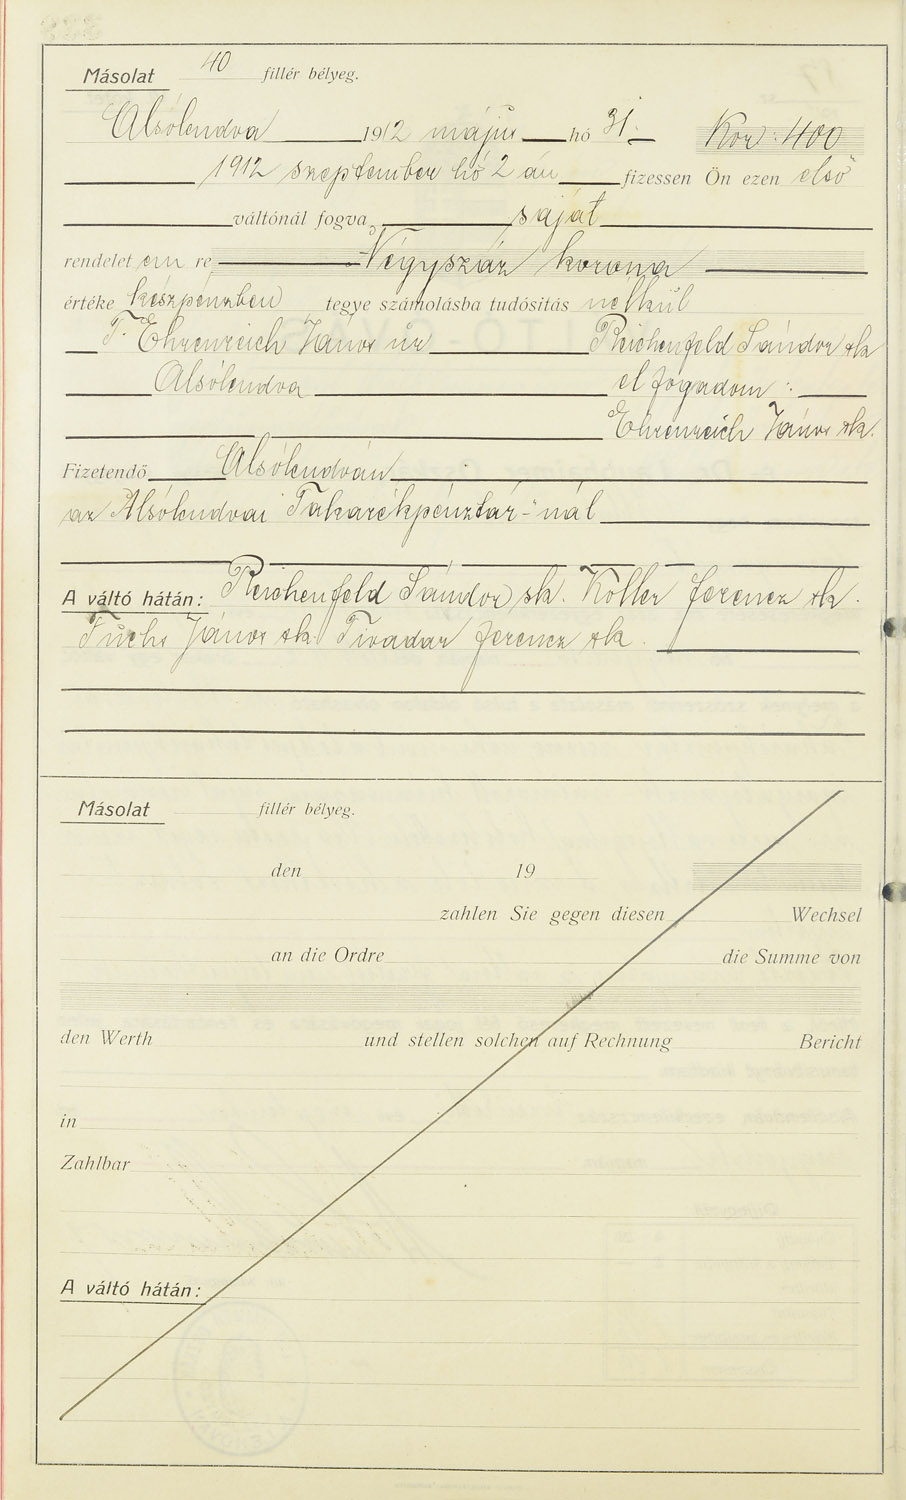 Másolat 40 fillér bélyeg.
Alsólendva 1912 május hó 31. Kor: 400
1912 szeptember hó 2 án fizessen Ön ezen első
váltónál fogva saját
rendelet em re Négyszáz korona
értéke készpénzben tegye számolásba tudósitás nélkül
T. Ehrenreich János úr Reichenfeld Sándor sk
Alsólendva elfogadom:
Ehrenreich János sk.
Fizetendő Alsólendván
az Alsólendvai Takarékpénztár-nál
A váltó hátán: Reichenfeld Sándor sk. Koller Ferencz sk.
Fuchs János sk. Tivadar Ferencz sk.
Másolat fillér bélyeg.
den 19
zahlen Sie gegen diesen Wechsel
an die Ordre die Summe von
den Werth und stellen solchen auf Rechnung Bericht
in
Zahlbar
A váltó hátán: